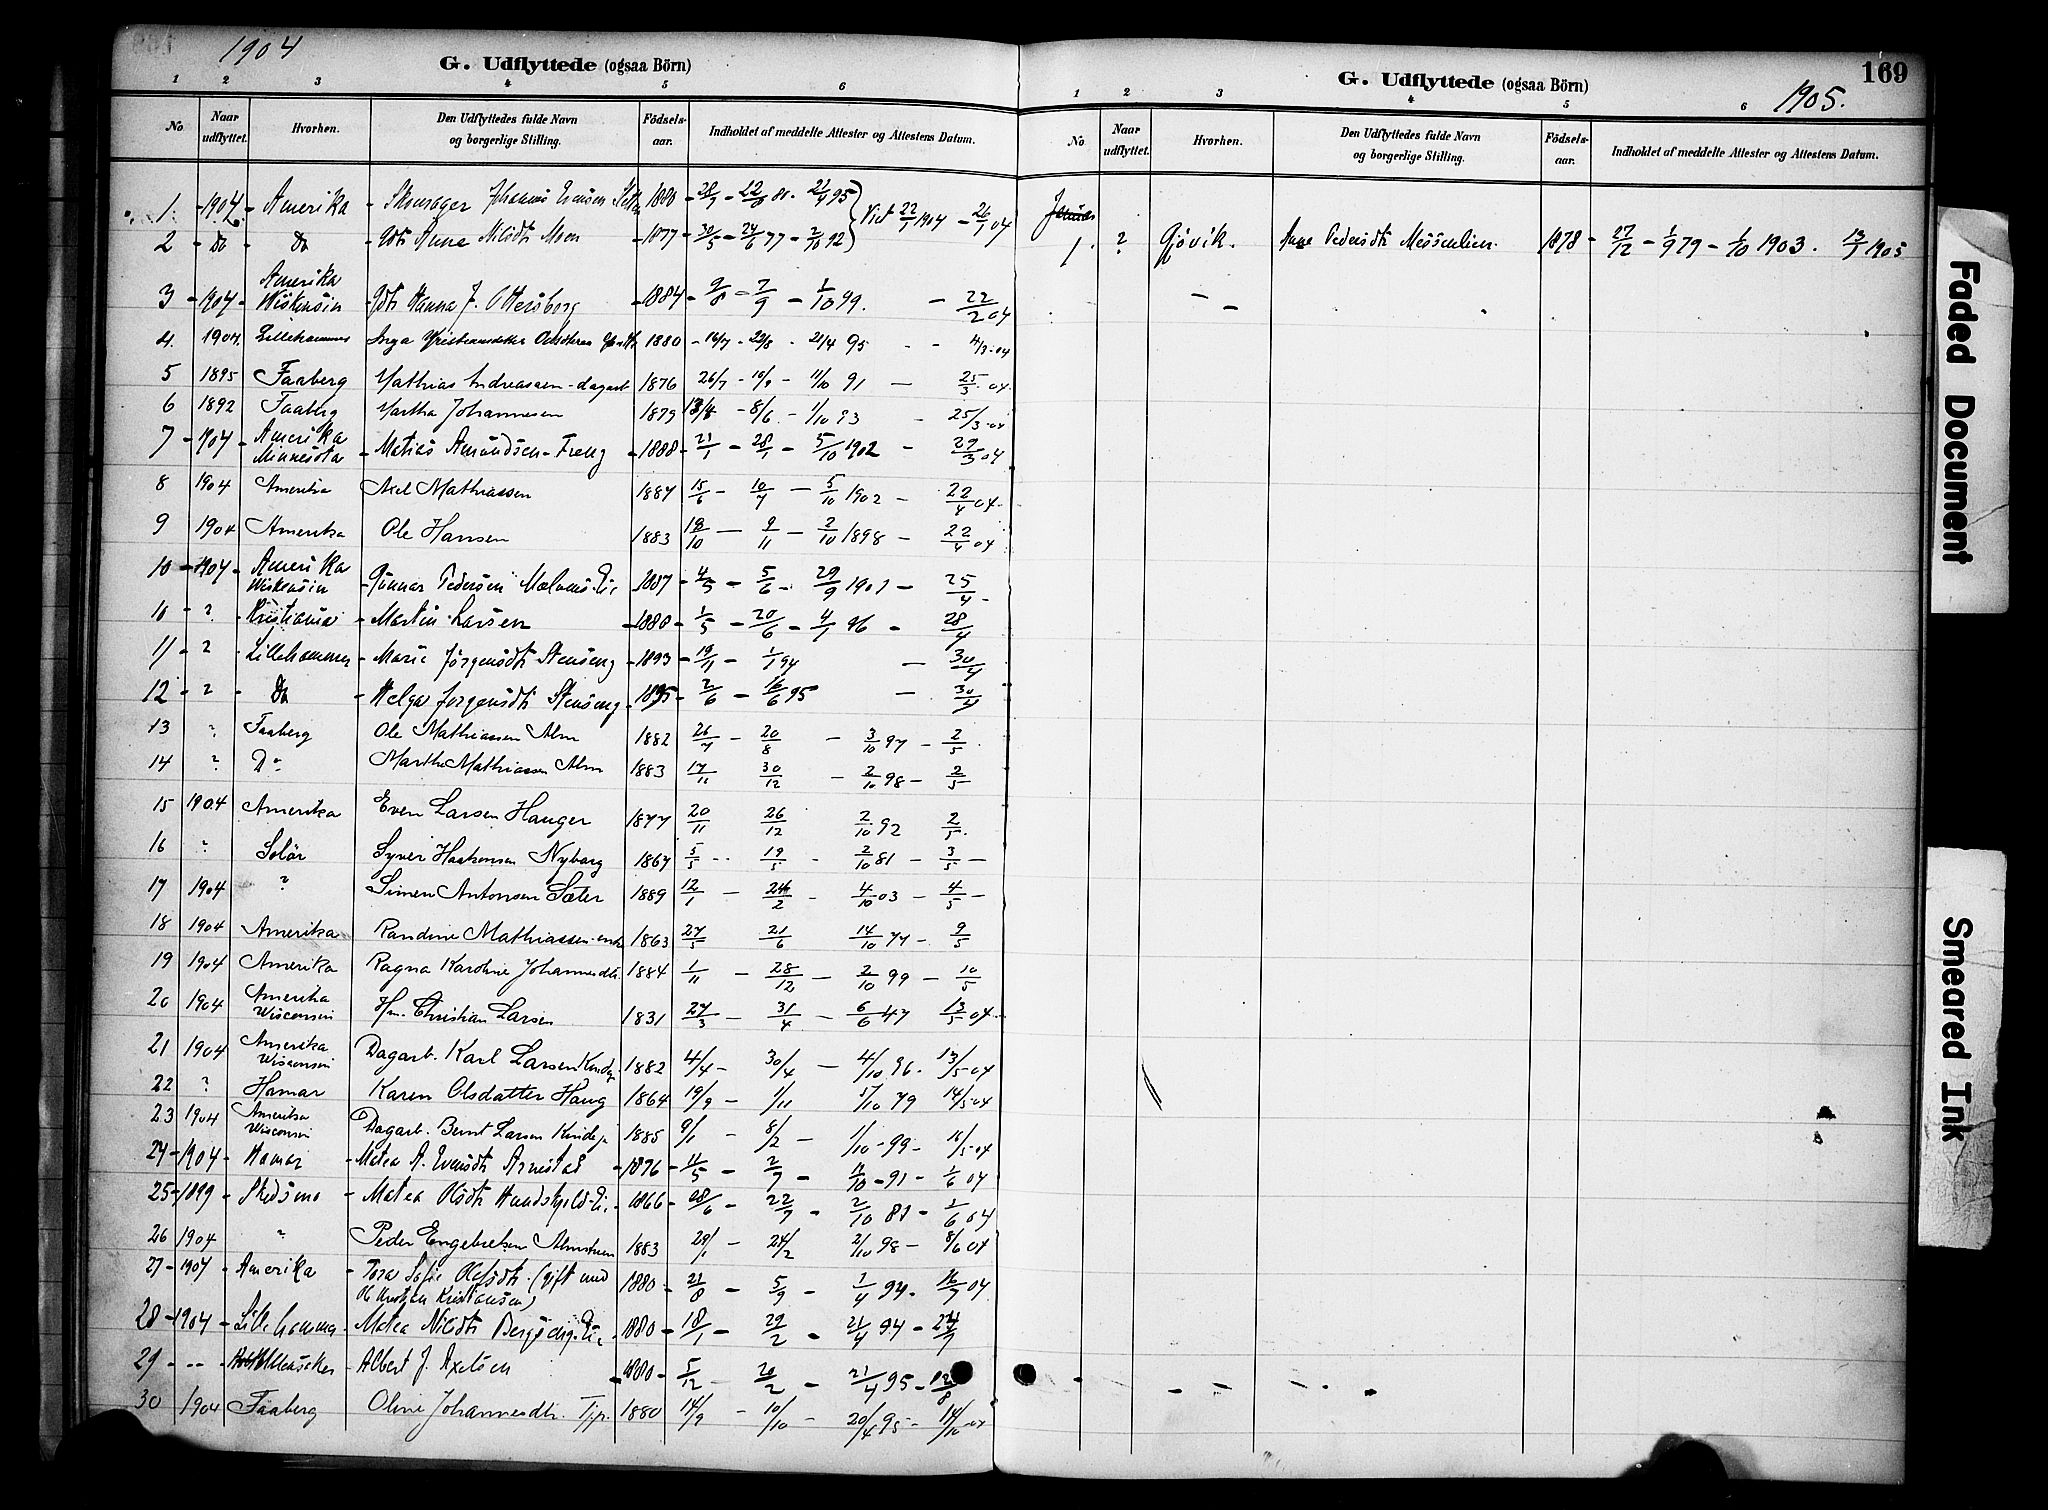 1904
G. Udflyttede (ogsaa Börn)
1 2 3 4 5 6
No
Naar udflyttet.
Hvorhen.
Den Udflyttedes fulde Navn og borgerlige Stilling.
Födsels-aar.
Indholdet af meddelte Attester og Attestens Datum.
1. - 1904 - Amerika - Johannes Evensen 1880 - 28/7 - 22/8 80 - 21/4 95 Viet 22/1 1904 - 26/1 04
2 - Do Do Anna Nilsdtr Moen - 1877 - 30/5 - 24/6 77 - 2/10 92
3 - 1904 - Amerika Wiskonsin - Hanna J. Ottersborg - 1884 - 9/8 - 7/9 - 1/10 99. - 22/2 04
4. 1904. Lillehammer Inga 1880 - 16/7 - 29/8 - 21/4 95 - - 4/3-04
5 1895 Faaberg Mathias Andreassen - dagarb 1876 26/7 - 10/9 - 11/10 91 - 25/3 04.
6 1892 Faaberg Martha Johannesen 1879 - 8/6 - 1/10 93 - 25/3-04
7 - 1904 - Amerika Minnesota - Matias Amundsen - Freng - 1888 - 21/1 - 28/1 - 5/10 1902 - 29/3 04
8 1904 Amerika Axel Mathiassen 1887 15/6 - 10/7 - 5/10 1902 - 22/4 04.
9 1904 Amerika Ole Hansen 1883 18/10 - 9/11 - 2/10 1898 - 22/4 04
10 - 1904 - Amerika Wiskonsin - Gunnar Pedersen 1887 - 4/5 - 5/6 - 29/9 1901 - 25/4 -
10 - ? - Kristiania - Martin Larsen - 1880 - 1/5 - 20/6 - 4/1 96 - 28/4
11 - ? - Lillehammer - Marie Jörgensdtr Stenseng - 1893 - 19/11 - 1/1 94 - 30/4
12 - ? - Do - Helga Jörgensdtr Stenseng - 1895 - 2/6 - 16/6 95 - 30/4
13 ? Faaberg Ole Mathiassen Alm 1882 26/7 - 20/8 - 3/10 97 - 2/5.
14 ? Do Marthe Mathiassen Alm 1883 17/11 30/12 - 2/10 98 - 2/5
15 1904 Amerika Even Larsen Hauger 1877 20/11 26/12 2/10 92 2/5.
16 ? Solör Syver Haakensen Nyborg 1867 5/5 - 19/5 - 2/10 81 - 3/5 -
17 1904 ? Simen Antonsen Sæter 1889 12/1 - 24/2 - 4/10 03 - 4/5 -
18 1904 Amerika Randine Mathiassen - enke 1863 27/5 21/6 14/10 77 - 9/5
19 1904 Amerika Ragna Karoline Johannesdtr. 1884 1/11 - 28/12 - 2/10 99 - 10/5
20 1904 Amerika Wisconsin Christian Larsen 1831 27/3 - 31/4 - 6/6 47 13/5 04.
21 1904 Amerika Wisconsin Dagarb. Karl Larsen 1882 4/4 - 30/4 - 4/10 96. 13/5-04
22 ? Hamar Karen Olsdatter Haug 1864 19/9 - 1/11 5/10 79 14/5-04
23 1904 Amerika Wisconsin Dagarb. Bernt Larsen 1885 9/1 - 8/2 - 1/10 - 99 - 18/5-04
24 - 1904 - Hamar - Matea A. Evensdtr 1876 - 11/5 - 2/7 - 11/10 - 91 - 1/6 04
25 - 1899 - Skedsmo - Matea Olsdtr 1866 - 28/6 - 22/7 - 2/10 81 - 1/6 04
26 1904 " Peder Engebretsen 1883 29/1 - 24/2 2/10 98 - 8/6 04
27 - 1904 - Amerika - Tora Sofie Olsdtr. (gift med Kristiansen) 1880 - 21/8 - 5/9 - 1/4 94. 16/7 04.
28 - 1904 - Lillehammer - Matea Nilsdtr 1880 - 18/1 - 29/2 - 21/4 94 - 24/7
29 - -- - Albert J. Axelsen 1880 - 5/12 - 20/2 - 21/4 95 - 12/8
30 1904 Faaberg Oline Johannesdtr. Tje. 1880 14/9 - 10/10 - 20/4 95 - 14/10-04
G. Udflyttede (ogsaa Börn)
169
1905.
1 2 3 4 5 6
No
Naar udflyttet.
Hvorhen.
Den Udflyttedes fulde Navn og borgerlige Stilling.
Födsels-aar.
Indholdet af meddelte Attester og Attestens Datum.
1. ? Gjövik. Pedersdtr 1878 - 27/12 - 1/9 79 - 1/10 1903. 13/1 1905
Faded Document
Smeared Ink